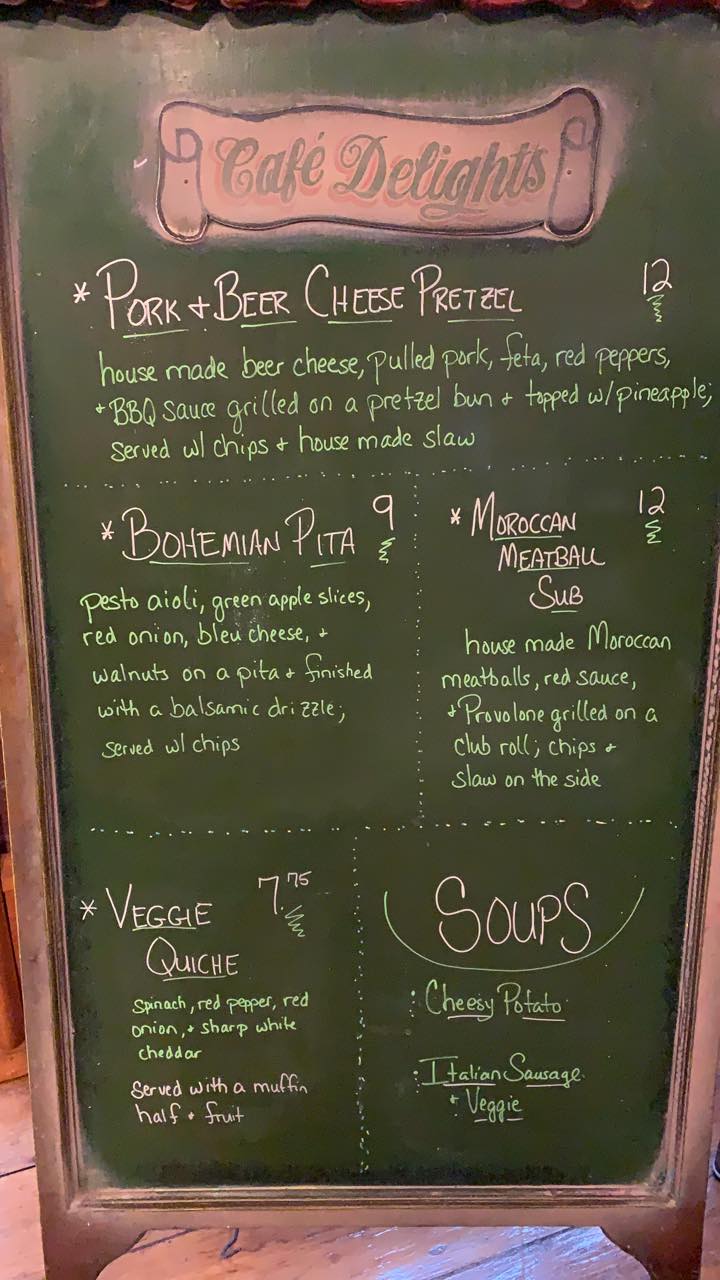 Café Delights
* PORK + BEER CHEESE PRETZEL 12
house made beer cheese, pulled pork, feta, red peppers,
+ BBQ sauce grilled on a pretzel bun + topped w/ pineapple;
served w/ chips + house made slaw
* BOHEMIAN PITA 9
pesto aioli, green apple slices,
red onion, bleu cheese, +
walnuts on a pita + finished
with a balsamic drizzle;
served w/ chips
* MOROCCAN 12
MEATBALL
SUB
house made Moroccan
meatballs, red sauce,
+ Provolone grilled on a
club roll; chips +
slaw on the side
* VEGGIE 7.75
QUICHE
Spinach, red pepper, red
onion, + sharp white
cheddar
Served with a muffin
half + fruit
SOUPS
: Cheesy Potato
: Italian Sausage
+ Veggie